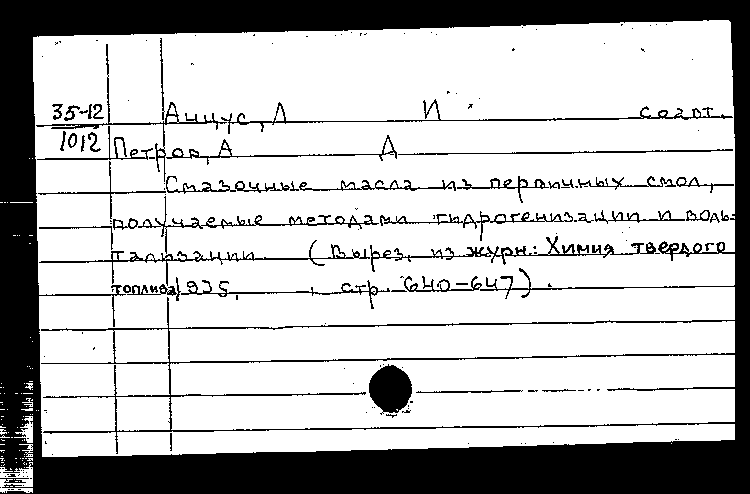 35-12 Анцус, Л И соавт.
1012 Петров, А Д
Смазочные масла из первичных смол,
получаемые методами гидрогенизации и воль-
тализации. (Вырез. из журн.: Химия твердого
топлива, 1935, , стр. 640-647).